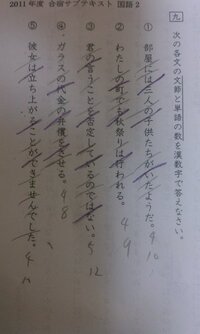 2011年度 合宿サブテキスト 国語2
九 次の各文の文節と単語の数を漢数字で答えなさい。
① 部屋には三人の子供たちがいたようだ。 4 10
② わたしの町でも秋祭りは行われる。 4 9
③ 君の言うことを否定しているのではない。 5 12
④ ガラスの代金の弁償をさせる。 4 8
⑤ 彼女は立ち上がることができませんでした。 4